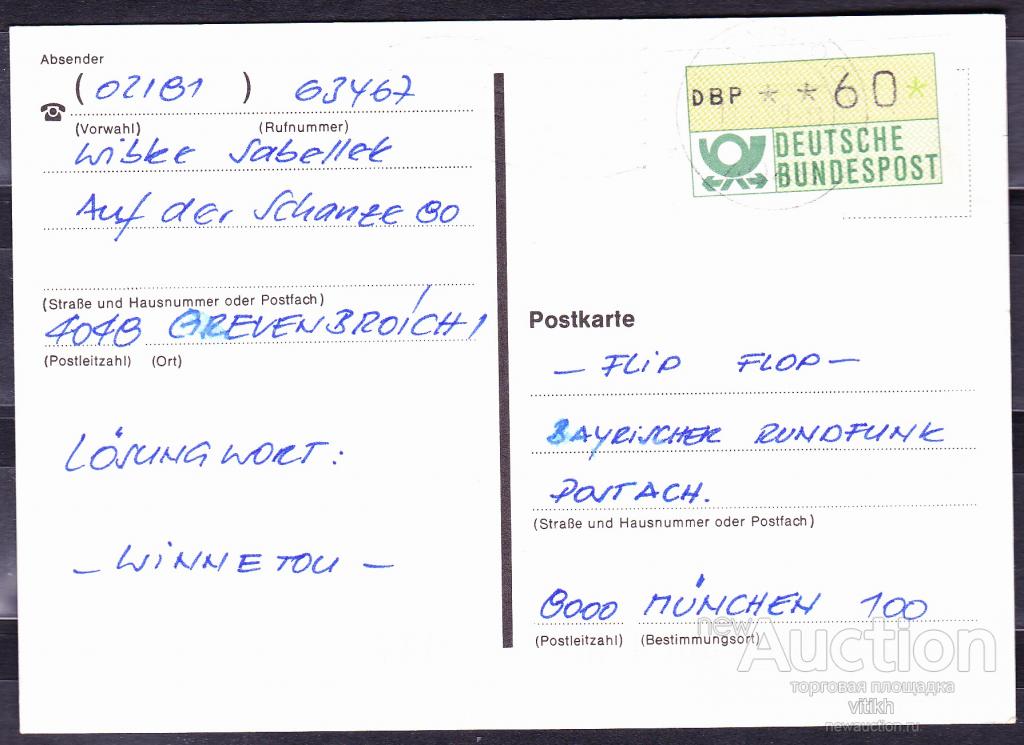 Absender
(02181) 63467
(Vorwahl) (Rufnummer)
Wibke Sabellek
Auf der Schanze 80
(Straße und Hausnummer oder Postfach)
4048 GREVENBROICH 1
(Postleitzahl) (Ort)
LÖSUNGWORT:
– WINNETOU –
DBP * * 60 *
DEUTSCHE
BUNDESPOST
Postkarte
– FLIP FLOP –
BAYRISCHER RUNDFUNK
POSTACH.
(Straße und Hausnummer oder Postfach)
8000 MÜNCHEN 100
(Postleitzahl) (Bestimmungsort)
newAuction
торговая площадка
vitikh
newauction.ru